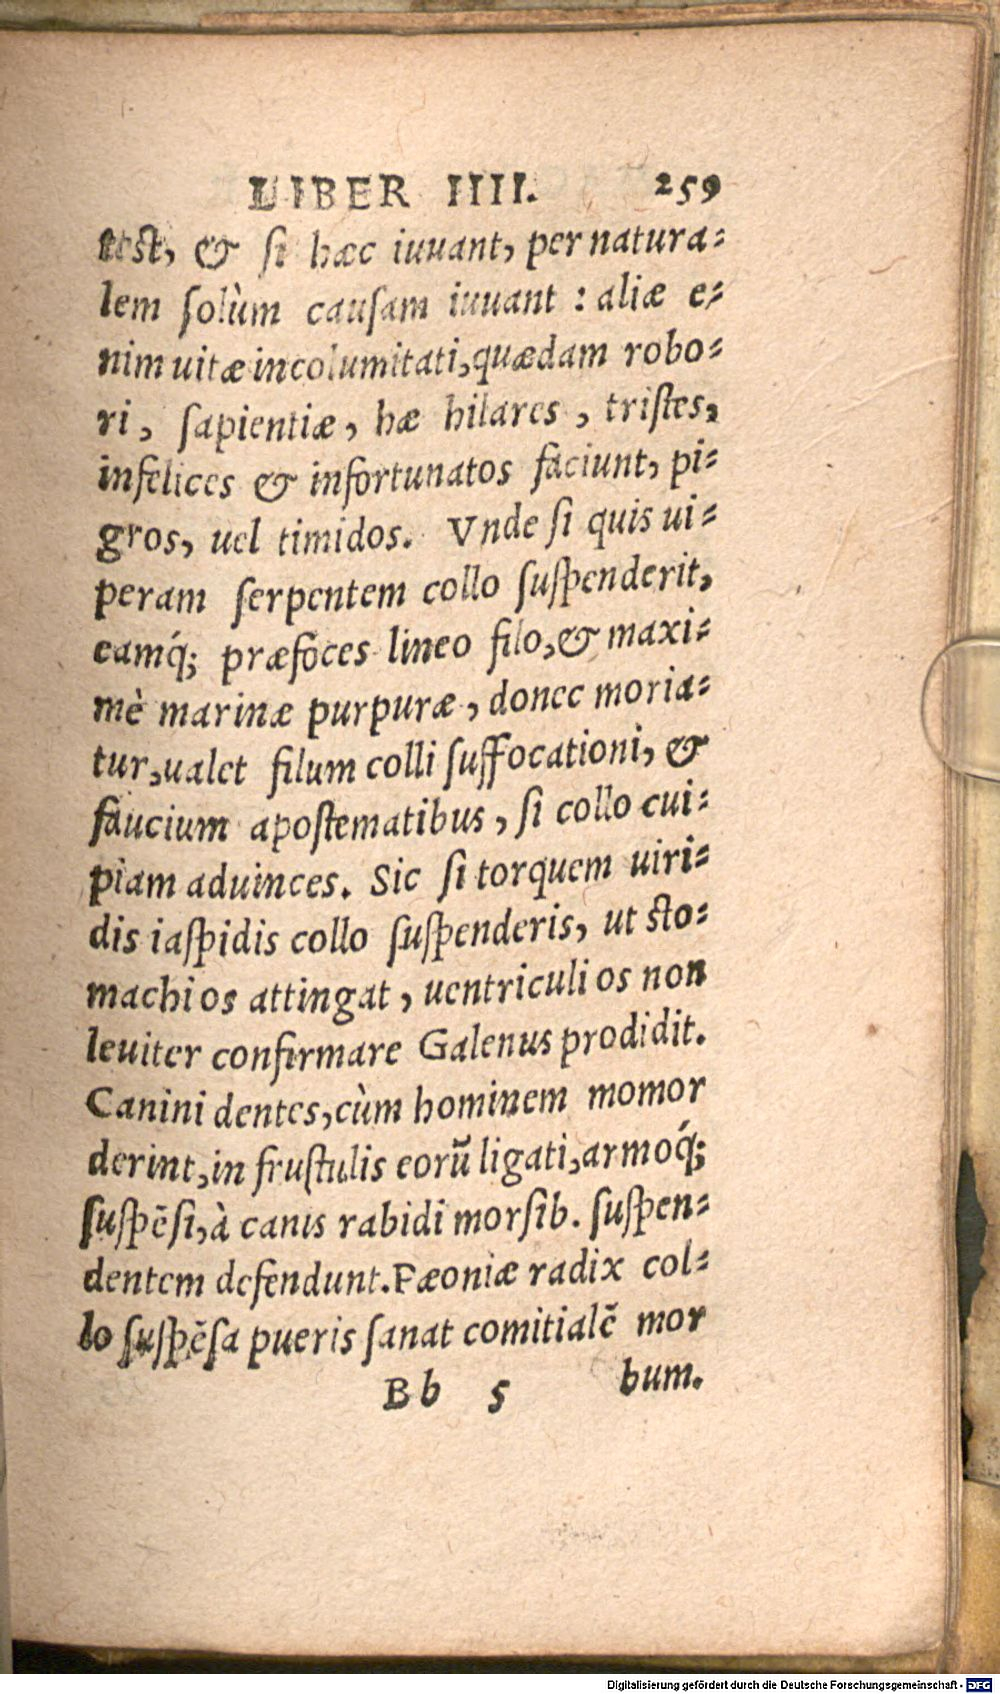 LIBER IIII. 259
test, & si hæc iuuant, per natura-
lem solùm causam iuuant : aliæ e-
nim uitæ incolumitati, quædam robo-
ri, sapientiæ, hæ hilares, tristes,
infelices & infortunatos faciunt, pi-
gros, uel timidos. Vnde si quis ui-
peram serpentem collo suspenderit,
eamq́; præfoces lineo filo, & maxi-
mè marinæ purpuræ, donec moria-
tur, ualet filum colli suffocationi, &
faucium apostematibus, si collo cui-
piam aduinces. Sic si torquem uiri-
dis iaspidis collo suspenderis, ut sto-
machi os attingat, uentriculi os non
leuiter confirmare Galenus prodidit.
Canini dentes, cùm hominem momor
derint, in frustulis eorũ ligati, armoq́;
suspẽsi, à canis rabidi morsib. suspen-
dentem defendunt. Pæoniæ radix col-
lo suspẽsa pueris sanat comitialẽ mor
Bb 5 bum.
Digitalisierung gefördert durch die Deutsche Forschungsgemeinschaft - DFG